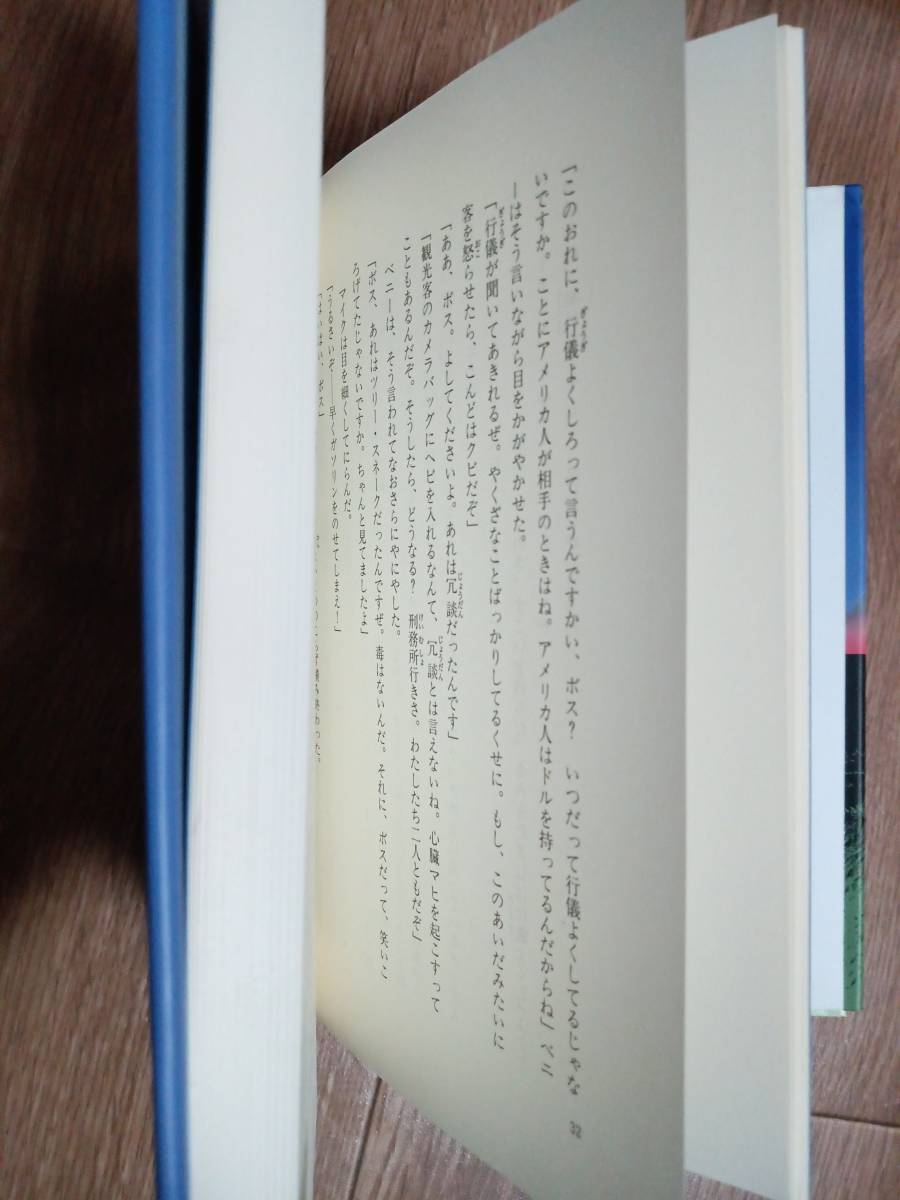 「このおれに、行儀よくしろって言うんですかい、ボス？　いつだって行儀よくしてるじゃな
いですか。ことにアメリカ人が相手のときはね。アメリカ人はドルを持ってるんだからね」ベニ
ーはそう言いながら目をかがやかせた。
「行儀が聞いてあきれるぜ。やくざなことばっかりしてるくせに。もし、このあいだみたいに
客を怒らせたら、こんどはクビだぞ」
「ああ、ボス。よしてくださいよ。あれは冗談だったんです」
「観光客のカメラバッグにヘビを入れるなんて、冗談とは言えないね。心臓マヒを起こすって
こともあるんだぞ。そうしたら、どうなる？　刑務所行きさ。わたしたち二人ともだぞ」
ベニーは、そう言われてなおさらにやにやした。
「ボス、あれはツリー・スネークだったんですぜ。毒はないんだ。それに、ボスだって、笑いこ
ろげてたじゃないですか。ちゃんと見てましたよ」
マイクは目を細くしてにらんだ。
「うるさいぞ――早くガソリンをのせてしまえ！」
「はいはい、ボス」
積み終わった。
32